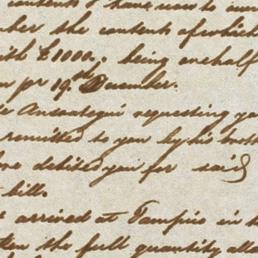 contents I have now to
the contents of which
£1000, being one half
pr 19th December.
requesting
remitted to you by his
debited you for said
bill.
arrived at Tampico in
the full quantity